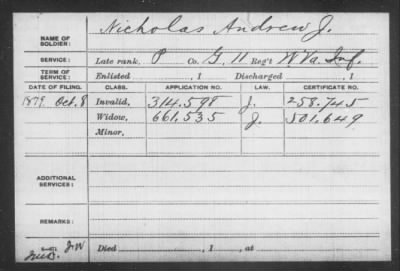 Nicholas Andrew J.
NAME OF SOLDIER:
SERVICE: Late rank, P Co. G, 11 Reg't W Va. Inf.
TERM OF SERVICE: Enlisted , 1 Discharged , 1
DATE OF FILING. CLASS. APPLICATION NO. LAW. CERTIFICATE NO.
1879 Oct. 8 Invalid, 314.598 J. 258.745
Widow, 661,535 J. 501.649
Minor,
ADDITIONAL SERVICES:
REMARKS:
Died , 1 , at